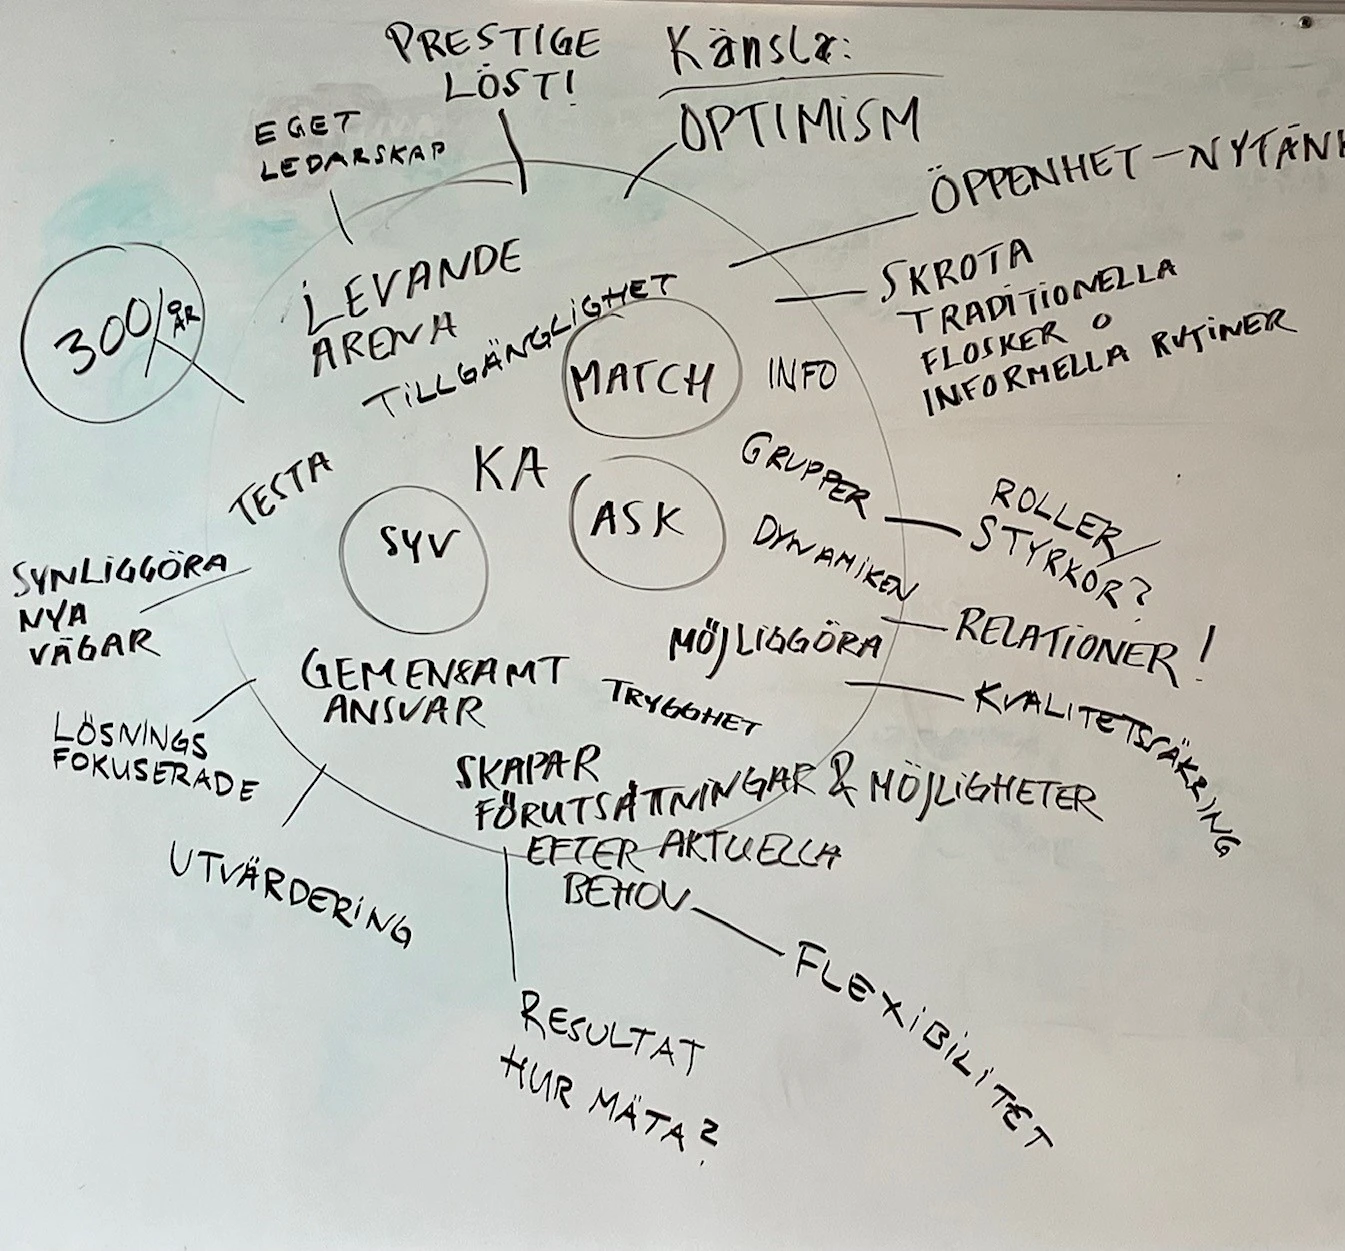 PRESTIGE
LÖST!
Känsla:
OPTIMISM
EGET
LEDARSKAP
ÖPPENHET – NYTÄNK
300/ÅR
LEVANDE
ARENA
TILLGÄNGLIGHET
MATCH
INFO
SKROTA
TRADITIONELLA
FLOSKER O
INFORMELLA RUTINER
TESTA
KA
SYV
ASK
GRUPPER
DYNAMIKEN
ROLLER/
STYRKOR?
SYNLIGGÖRA
NYA
VÄGAR
MÖJLIGGÖRA
RELATIONER!
GEMENSAMT
ANSVAR
TRYGGHET
KVALITETSSÄKRING
LÖSNINGS
FOKUSERADE
SKAPAR
FÖRUTSÄTTNINGAR & MÖJLIGHETER
EFTER AKTUELLA
BEHOV
UTVÄRDERING
FLEXIBILITET
RESULTAT
HUR MÄTA?